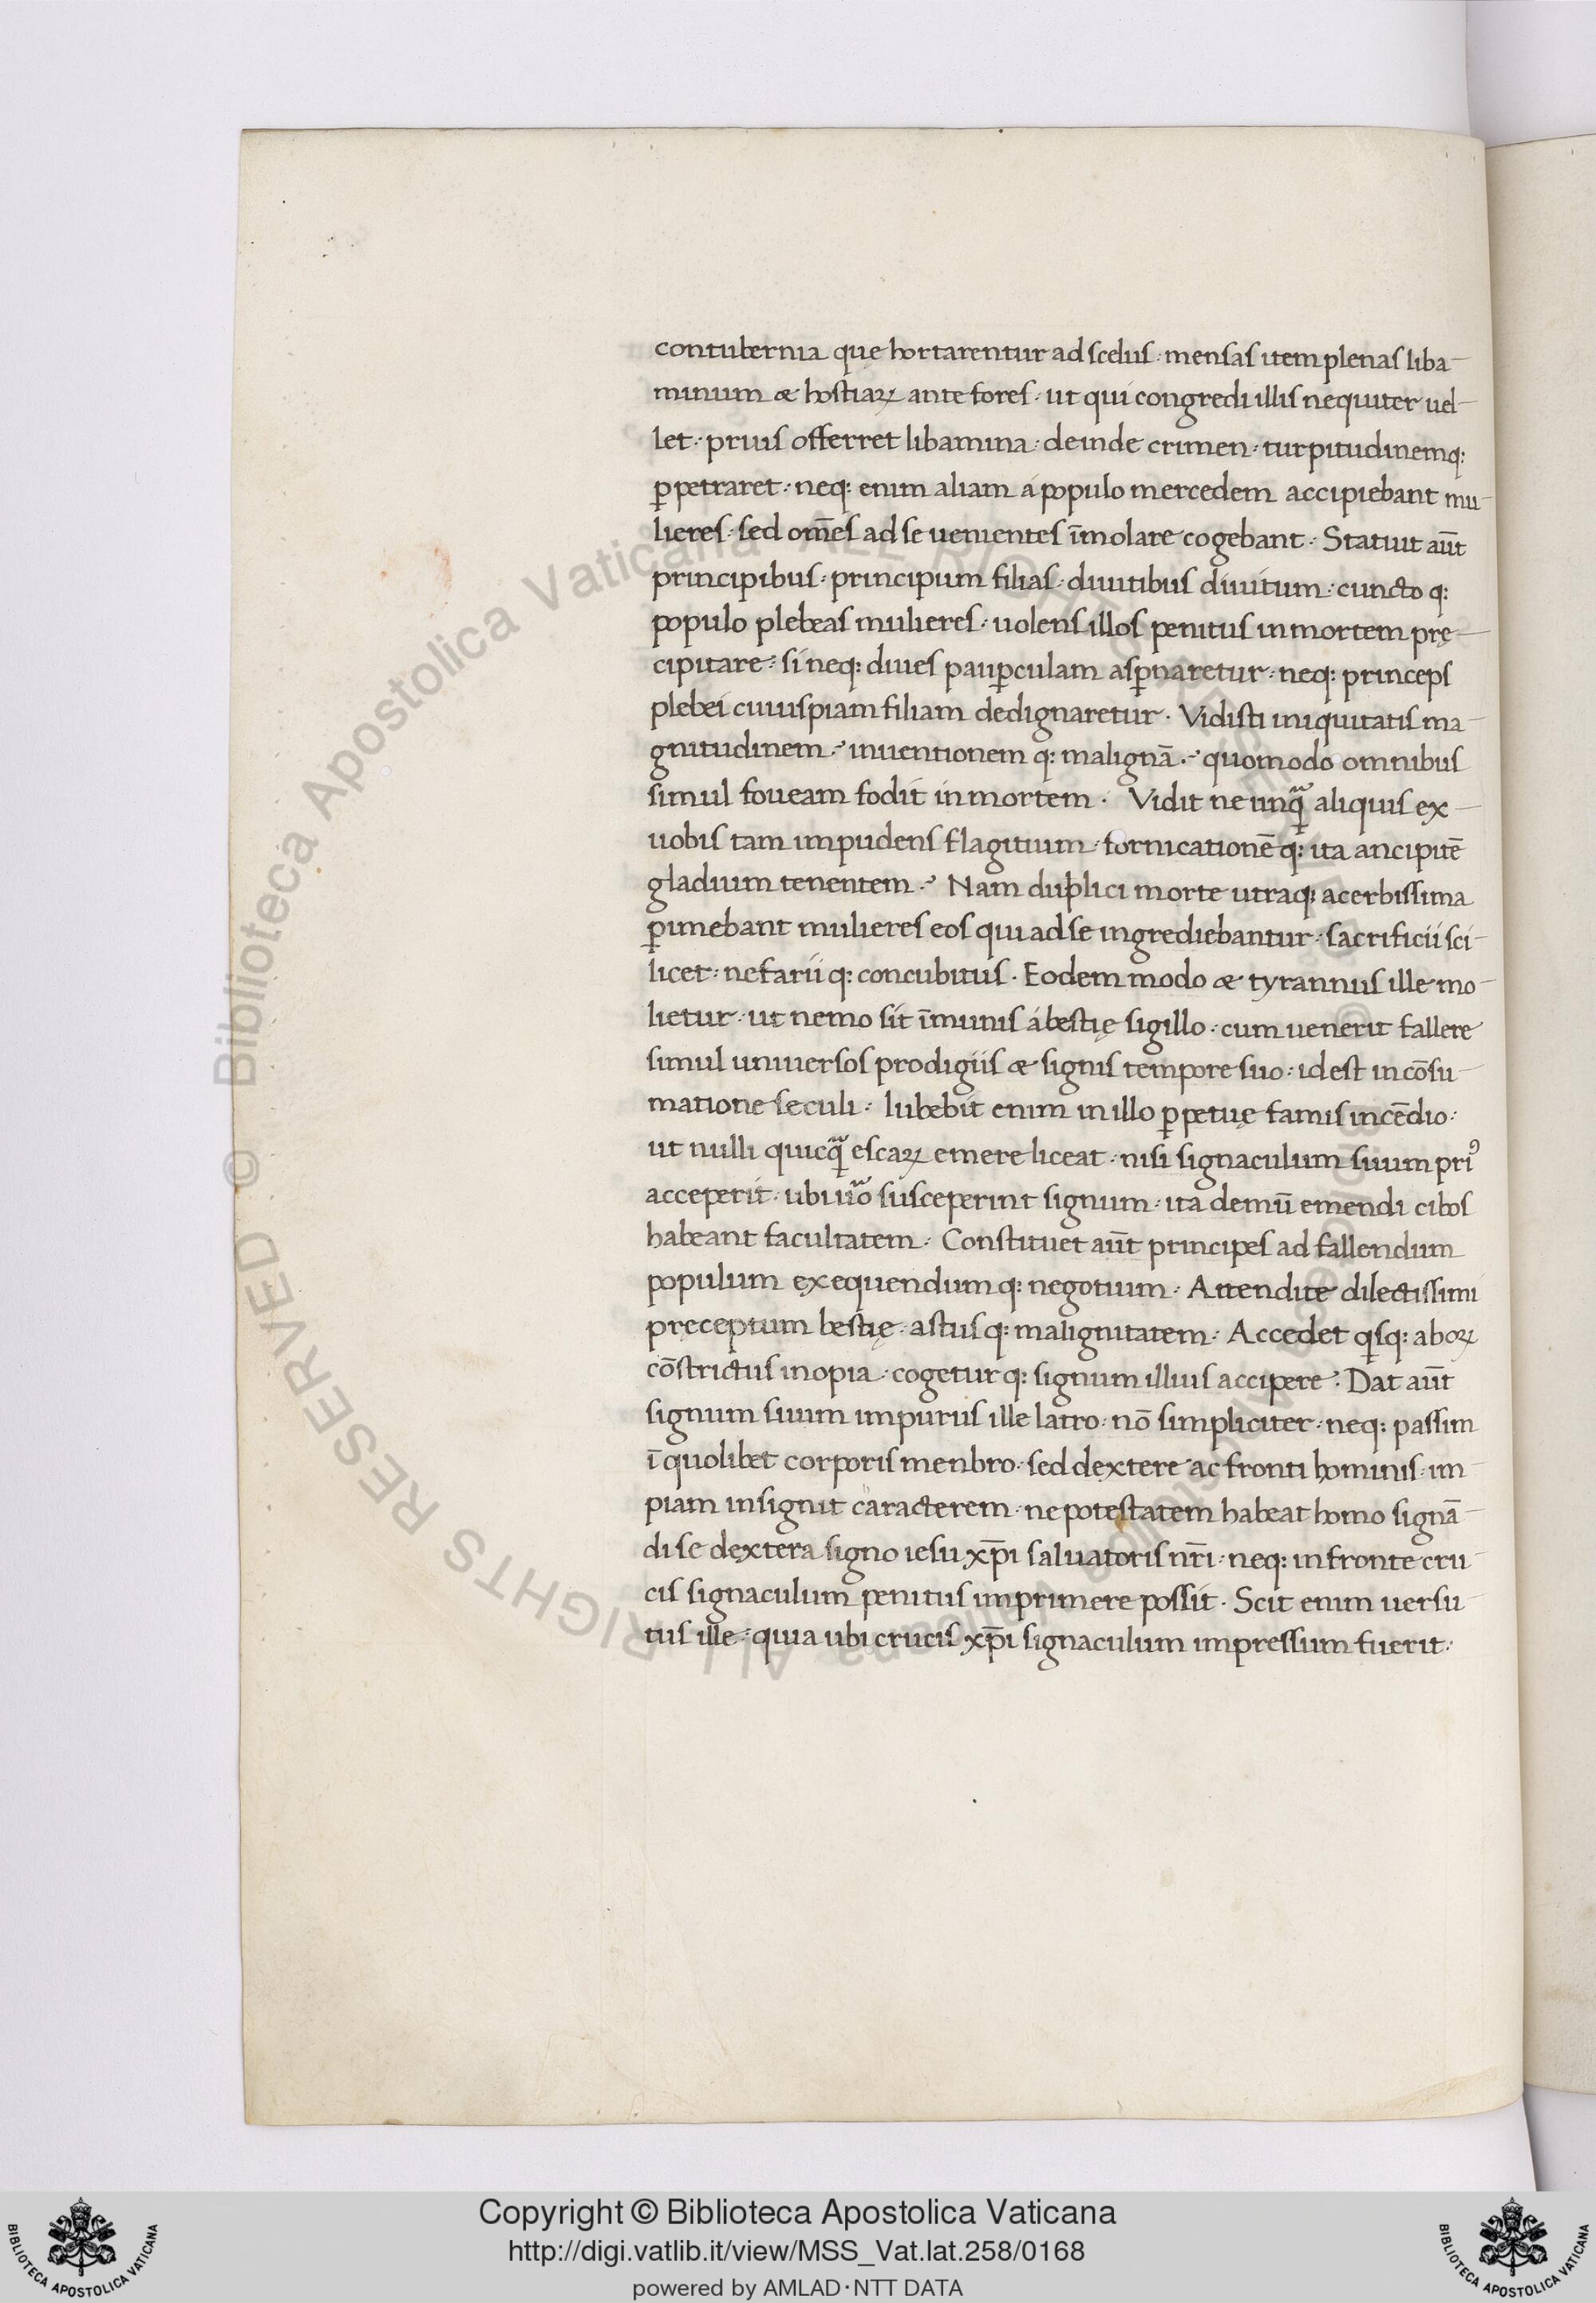 contubernia quę hortarentur ad scelus : mensas item plenas liba-
minum & hostiaꝝ ante fores : ut qui congredi illis nequiter uel-
let : prius offerret libamina : deinde crimen : turpitudinemq:
ꝑpetraret : neq: enim aliam á populo mercedem accipiebant mu-
lieres : sed om̄es ad se uenientes īmolare cogebant : Statuit aūt
principibus : principum filias : diuitibus diuitum : cuncto q:
populo plebeas mulieres : uolens illos penitus in mortem prę-
cipitare : si neq: diues pauꝑculam asꝑnaretur : neq: princeps
plebei cuiuspiam filiam dedignaretur . Vidisti iniquitatis ma-
gnitudinem : inuentionem q: malignā : quomodo omnibus
simul foueam fodit in mortem . Vidit ne unꝗᷓ aliquis ex-
uobis tam impudens flagitium : fornicationē q: ita ancipitē
gladium tenentem : Nam duplici morte utraq: acerbissima
ꝑimebant mulieres eos qui ad se ingrediebantur : sacrificii sci-
licet : nefarii q: concubitus . Eodem modo & tyrannus ille mo-
lietur : ut nemo sit īmunis á bestię sigillo : cum uenerit fallere
simul uniuersos prodigiis & signis tempore suo : id est in cōsu-
matione seculi : Iubebit enim in illo ꝑpetuę famis incēdio :
ut nulli quicꝗᷓ escaꝝ emere liceat : nisi signaculum suum priꝰ
acceperit : ubi uᷓo susceperint signum : ita demū emendi cibos
habeant facultatem : Constituet aūt principes ad fallendum
populum exequendum q: negotium : Attendite dilectissimi
pręceptum bestię : astus q: malignitatem : Accedet qsq: ab oꝝ
cōstrictus inopia : cogetur q: signum illius accipere : Dat aūt
signum suum impurus ille latro : nō simpliciter : neq: passim
ī quolibet corporis menbro : sed dextere ac fronti hominis : im-
piam insignit caracterem : ne potestatem habeat homo signā-
di se dextera signo iesu xp̄i saluatoris nr̄i : neq: in fronte cru-
cis signaculum penitus imprimere possit . Scit enim uersu-
tus ille : quia ubi crucis xp̄i signaculum impressum fuerit :
© Biblioteca Apostolica Vaticana ALL RIGHTS RESERVED © Biblioteca Apostolica Vaticana ALL RIGHTS RESERVED
BIBLIOTECA APOSTOLICA VATICANA
Copyright © Biblioteca Apostolica Vaticana
http://digi.vatlib.it/view/MSS_Vat.lat.258/0168
powered by AMLAD·NTT DATA
BIBLIOTECA APOSTOLICA VATICANA